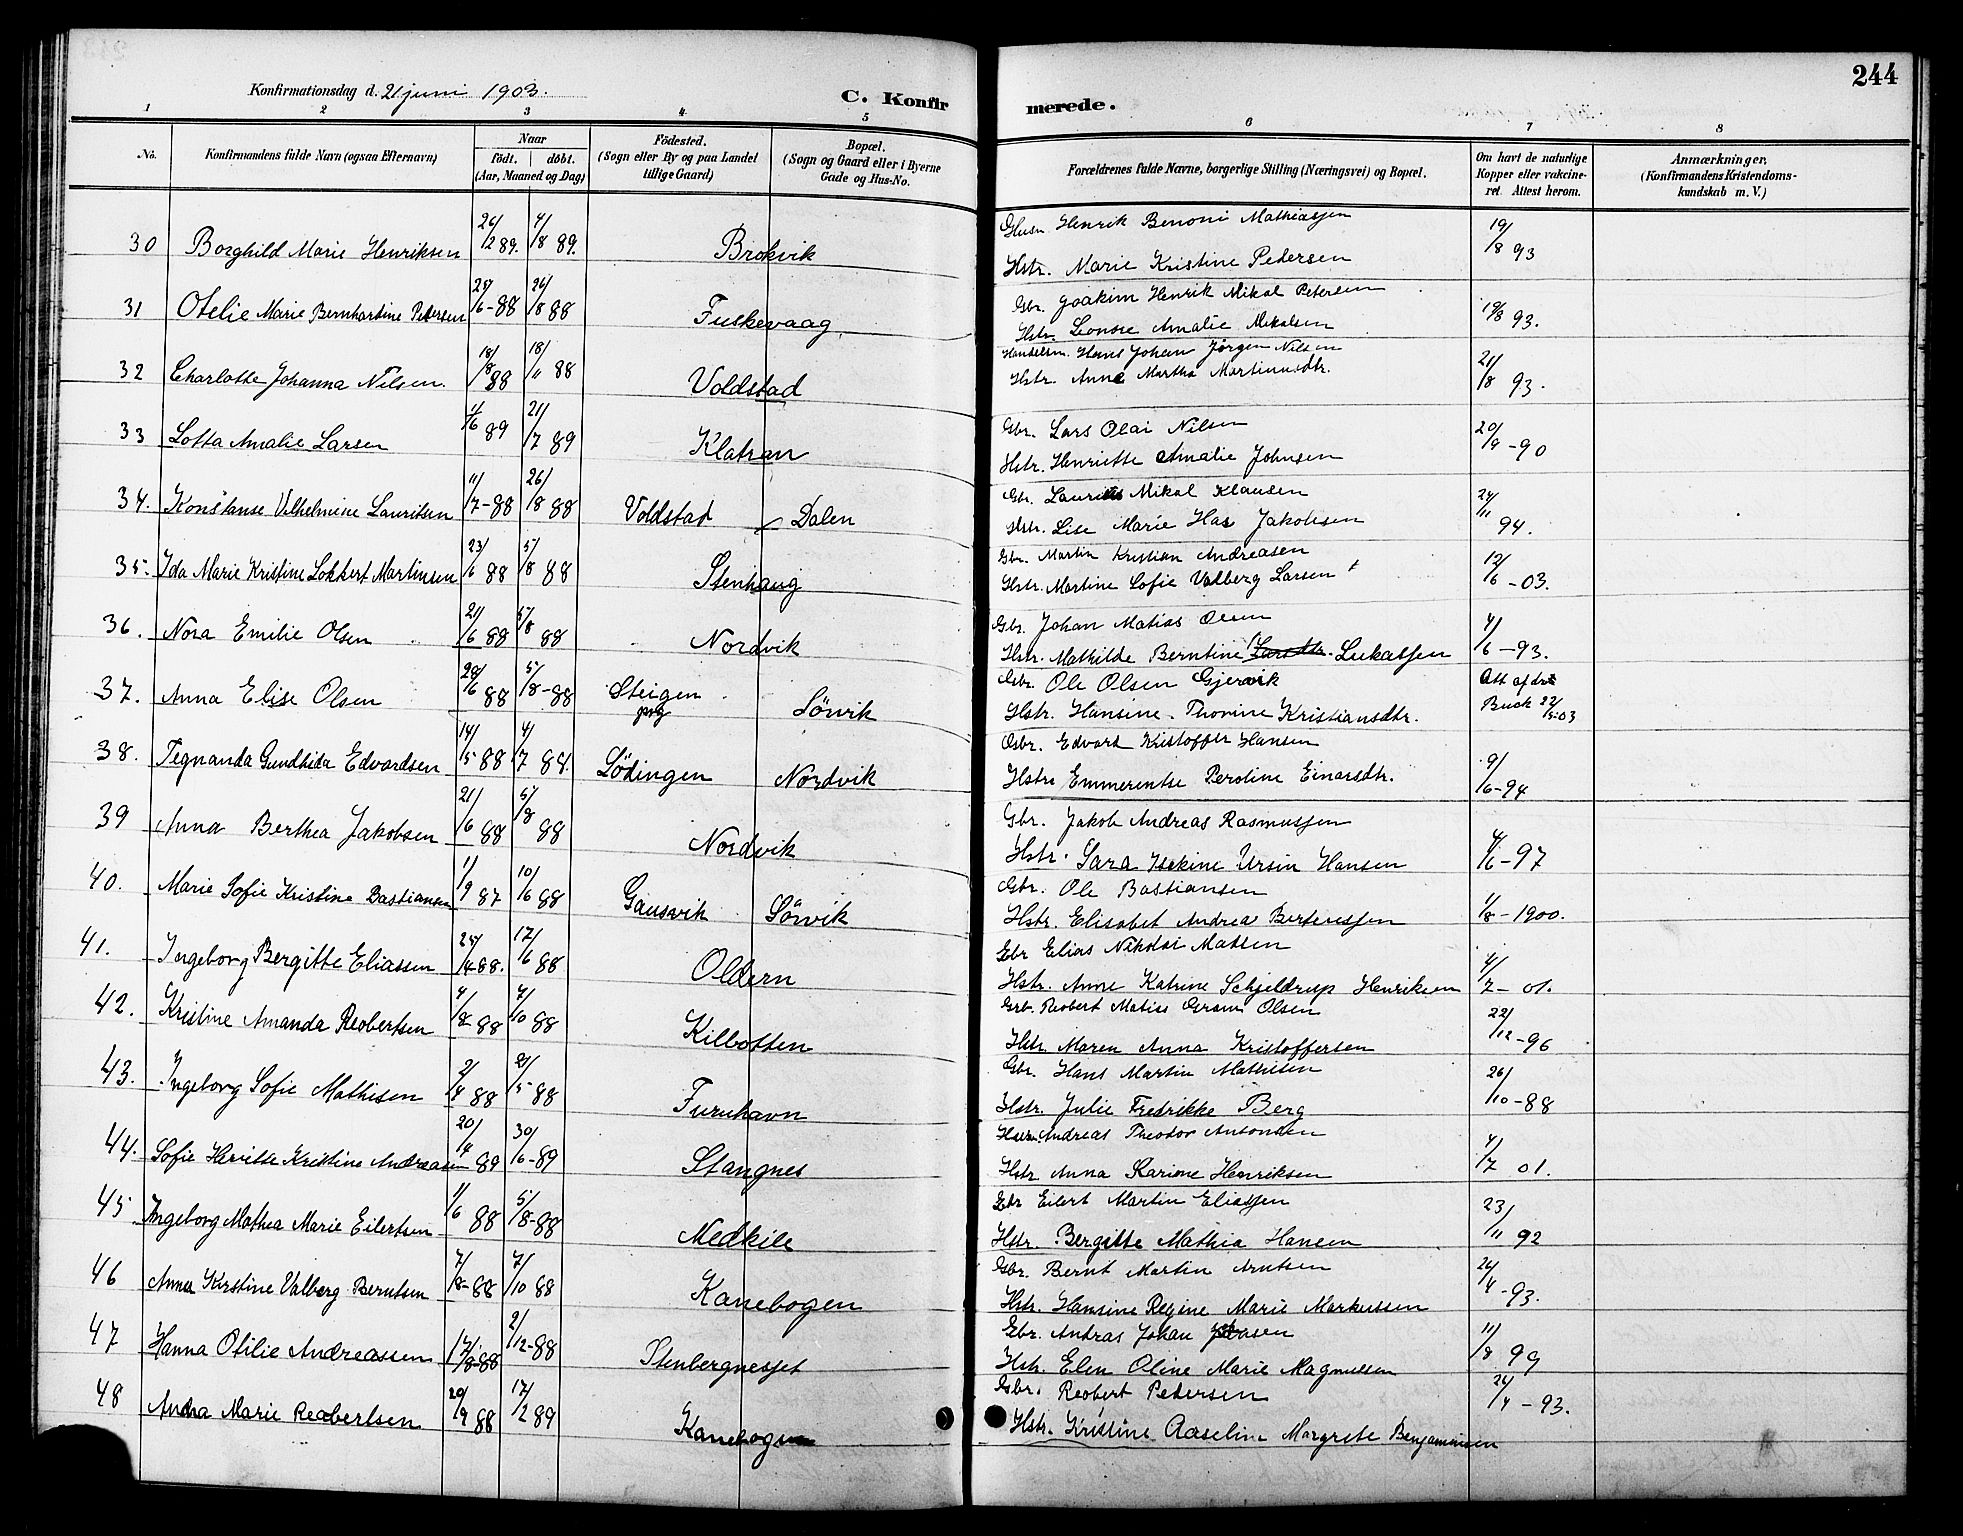 244
Konfirmationsdag d. 21 juni 1903.
C. Konfirmerede.
1 2 3 4 5 6 7 8
No. Konfirmandens fulde Navn (ogsaa Efternavn) Naar født. døbt. (Aar, Maaned og Dag) Fødested. (Sogn eller By og paa Landet tillige Gaard) Bopæl. (Sogn og Gaard eller i Byerne Gade og Hus-No. Forældrenes fulde Navne, borgerlige Stilling (Næringsvei) og Bopæl. Om havt de naturlige Kopper eller vakcineret. Attest herom. Anmærkninger. (Konfirmandens Kristendomskundskab m. V.)
30 Borghild Marie Henriksen 26/12 89. 4/8 89. Brokvik Husm Henrik Benoni Mathiassen 19/8 93
Hstr. Marie Kristine Pedersen
31 Otelie Marie Bernhartine Petersen 25/6-88 26/8 88 Fuskevaag Gbr. Joakim Henrik Mikal Petersen 19/8 93.
Hstr. Leonore Amalie Mikalsen
32 Charlotte Johanna Nilsen. 18/8 88 18/11 88 Voldstad Handelsm. Hans Johan Jørgen Nilsen 21/8 93.
Hstr. Anne Martha Martinusdtr.
33 Lotta Amalie Larsen 4/6 89 21/7 89 Klatran Gbr. Lars Olai Nilsen 20/9-90
Hstr. Henriette Amalie Johnsen
34. Konstanse Vilhelmine Lauritsen 11/7-88 26/8 88 Voldstad Dalen Gbr. Laurits Mikal Klausen 24/11 94.
Hstr. Lise Marie Has Jakobsen
35. Ida Marie Kristine Lokkert Martinsen 23/6 88 5/8 88 Stenhaug Gbr. Martin Kristian Andreasen 12/6-03.
Hstr. Martine Sofie Valberg Larsen †
36. Nora Emilie Olsen 21/6 88 5/8 88 Nordvik Gbr. Johan Matias Olsen 4/6-93.
Hstr. Mathilde Berntine Larsdtr. Lukassen
37. Anna Elise Olsen 28/6 88 5/8-88 Steigen prg Sørvik Gbr. Ole Olsen Gjervik Att af dr
Hstr. Hansine Thorine Kristiansdtr. Buck 22/5-03
38. Tegnanda Gundhida Edvardsen 14/5 88 4/7 88. Lødingen Nordvik Gbr. Edvard Kristoffer Hansen 9/6-94
Hstr. Emmerentse Peroline Einarsdtr.
39 Anna Berthea Jakobsen 21/6 88 5/8 88 Nordvik Gbr. Jakob Andreas Rasmussen 4/6-97
Hstr. Sara Isekine Ursin Hansen
40. Marie Sofie Kristine Bastiansen 1/9 87 10/6 88 Gausvik Sørvik Gbr. Ole Bastiansen 1/8-1900.
Hstr. Elisabet Andrea Berteussen
41. Ingeborg Bergitte Eliassen 25/4-88. 17/6 88 Oldern Gbr Elias Nikolai Matsen 4/7-01.
Hstr. Anne Katrine Schjeldrup Henriksen
42. Kristine Amanda Reobertsen 4/8-88 7/10 88 Kilbotten Gbr. Reobert Matias Gram Olsen 22/12-96
Hstr. Maren Anna Kristoffersen
43. Ingeborg Sofie Mathisen 2/4 88 21/5-88 Furuhavn Gbr. Hans Martin Mathisen 26/10-88
Hstr. Julie Fredrikke Berg
44. Sofie Hervitte Kristine Andreasen 20/4 89 30/6-89 Stangnes Husm. Andreas Theodor Antonsen 4/7 01.
Hstr Anna Karine Henriksen
45 Ingeborg Mathea Marie Eilertsen 1/6 88 5/8-88 Medkile Gbr Eilert Martin Eliassen 23/11 92
Hstr. Bergitte Mathia Hansen
46 Anna Kristine Valberg Berntsen 7/8-88 7/10 88 Kanebogen Gbr. Bernt Martin Arntsen 24/4-93.
Hstr. Hansine Regine Marie Markussen
47 Hanna Otilie Andreassen 17/8-88 2/12-88 Stenbergnesset Gbr. Andras Johan 11/8 99
Hstr. Elen Oline Marie Magnussen
48 Andra Marie Reobertsen 20/9 88 17/2 89 Kanebogen Gbr. Reobert Pedersen 24/4-93.
Hstr. Kristine Aaseline Margrete Benjaminsen